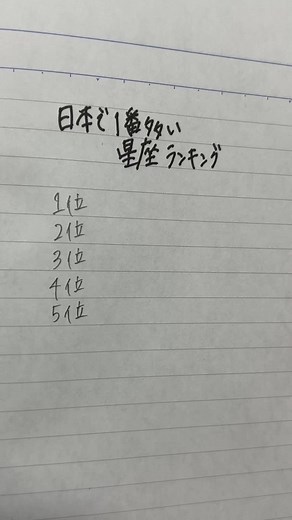 日本で1番多い
星座ランキング
1位
2位
3位
4位
5位